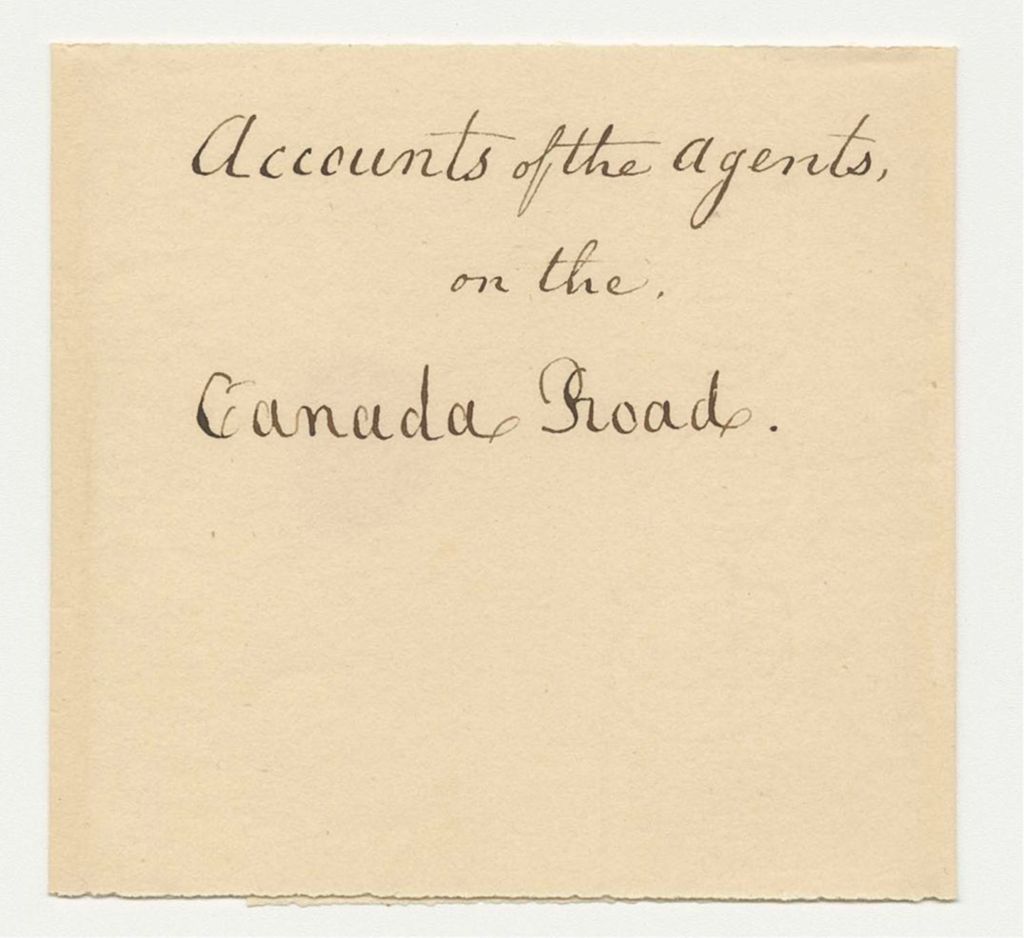 Accounts of the agents,
on the.
Canada Road.